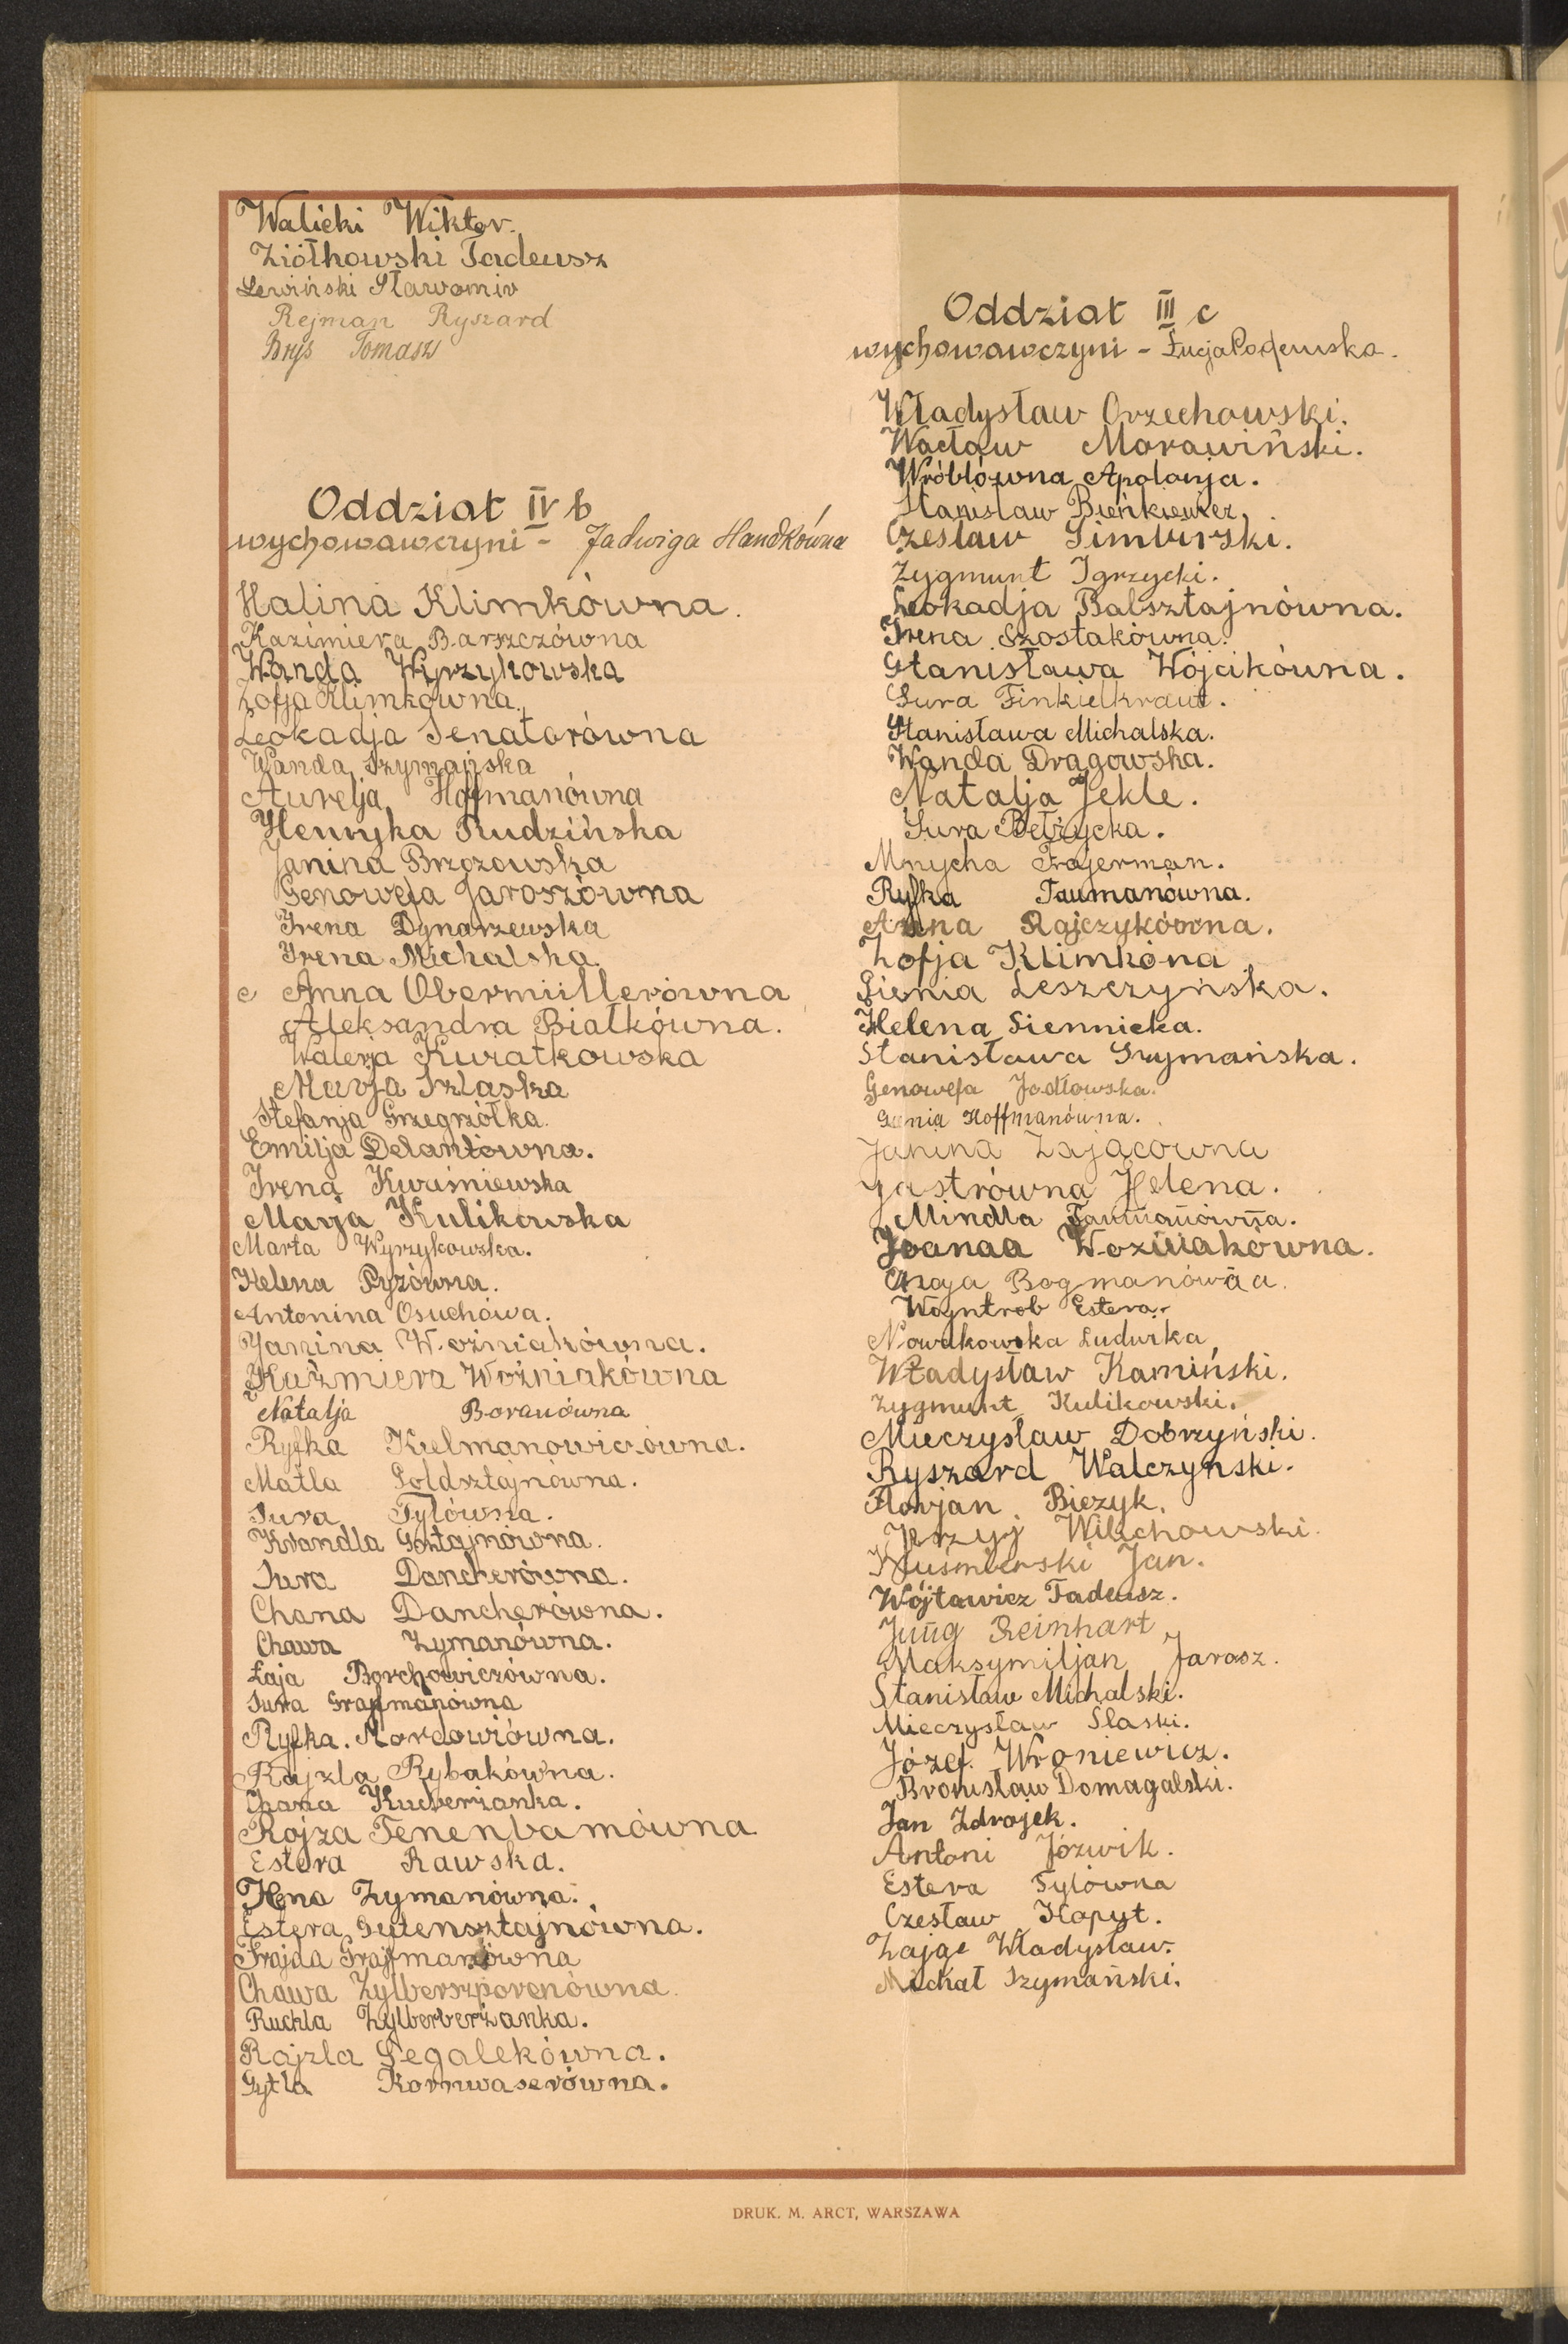 Walicki Wiktor.
Ziółkowski Tadeusz
Lewiński Sławomir
Rejman Ryszard
Bryś Tomasz
Oddział IV b
wychowawczyni - Jadwiga Handkówna
Halina Klimkówna.
Kazimiera Barszczówna
Wanda Wyrzykowska
Zofja Klimkówna.
Leokadja Senatorówna
Wanda Szymańska
Aurelja Hofmanówna
Henryka Rudzińska
Janina Brzozowska
Genowefa Jaroszówna
Irena Dynarzewska
Irena Michalska.
Anna Obermüllerówna
Aleksandra Białkówna.
Walerja Kwiatkowska
Marja Szlaska
Stefanja Grzegrzółka.
Emilja Delantówna.
Irena Kwaśniewska
Marja Kulikowska
Marta Wyrzykowska.
Helena Pyzówna.
Antonina Osuchówa.
Janina Woźniakówna.
Kaźmiera Woźniakówna
Natalja Boranówna
Ryfka Kielmanowiczówna.
Matla Goldsztajnówna.
Sura Tylówna.
Krandla Gosztajnówna.
Sura Dancherówna.
Chana Dancherówna.
Chawa Zymanówna.
Łaja Borchowiczówna.
Sura Grafmanówna
Ryfka. Mordowiówna.
Rajzla Rybakówna.
Chana Kucberżanka.
Rojza Tenenbamówna
Estera Rawska.
Hena Zymanówna.
Estera Gutensztajnówna.
Frajda Grajfmanówna
Chawa Zylberszporenówna.
Ruchla Zylberberżanka.
Rajzla Segalekówna.
Gytla Kornwaserówna.
Oddział III c
wychowawczyni - Łucja
Władysław Orzechowski.
Wacław Morawiński.
Wróblówna Apolonja.
Stanisław Bieńkiewicz.
Czesław Simburski.
Zygmunt Igrzycki.
Leokadja Balsztajnówna.
Irena Szostakówna.
Stanisława Wójcikówna.
Sura Finkielkraut.
Stanisława Michalska.
Wanda Dragowska.
Natalja Jekle.
Sura Bełżycka.
Mnycha Frajerman.
Ryfka Taumanówna.
Anna Rajczykówna.
Zofja Klimkóna
Gienia Leszczyńska.
Helena Siennicka.
Stanisława Szymańska.
Genowefa Jodłowska.
Genia Hoffmanówna.
Janina Zającówna
Jastrówna Helena.
Mindla Taumanówna.
Joanna Woźniakówna.
Chaja Bogmanówna.
Wajntrob Estera.
Nowakowska Ludwika
Władysław Kamiński.
Zygmunt Kulikowski.
Mieczysław Dobrzyński.
Ryszard Walczyński.
Florjan Bieżyk.
Jerzyj Wilchowski.
Kuśmierski Jan.
Wójtawicz Tadeusz.
Jung Reinhart
Maksymiljan Jarosz.
Stanisław Michalski.
Mieczysław Ślaski.
Józef Wroniewicz.
Bronisław Domagalski.
Jan Zdrojek.
Antoni Józwik.
Estera Tylówna
Czesław Kaput.
Zając Władysław.
Michał Szymański.
DRUK. M. ARCT, WARSZAWA